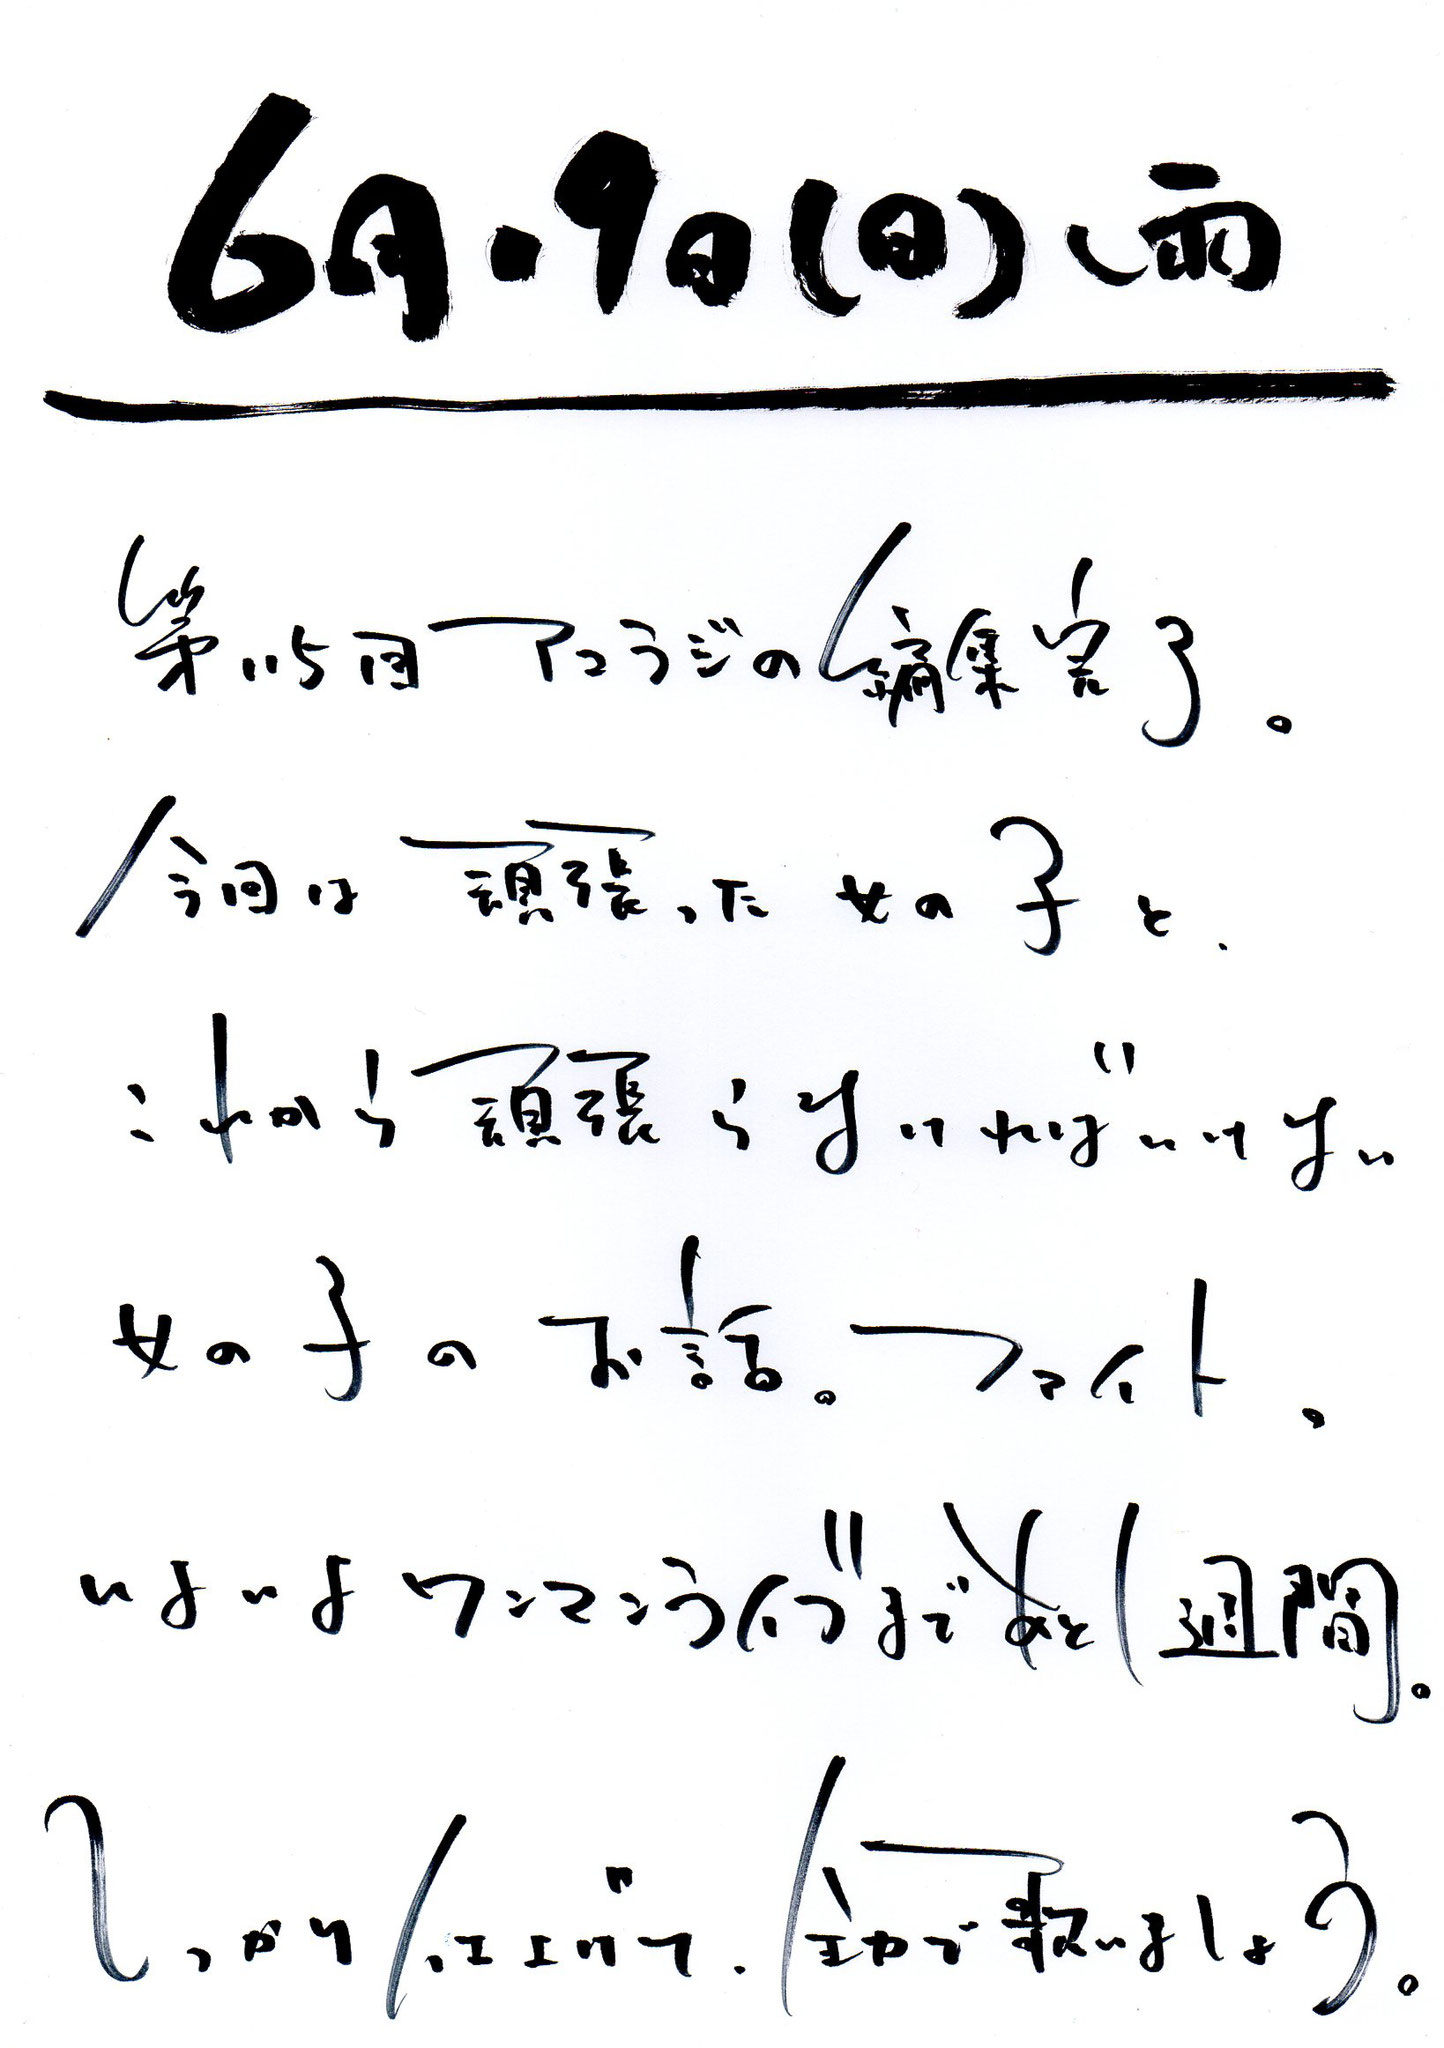 6月・9日(日)、雨
第115回アコラジの編集完了。
今回は頑張った女の子と、
これから頑張らなければいけない
女の子のお話。ファイト。
いよいよワンマンライブまであと1週間。
しっかり仕上げて、全力で歌いましょう。